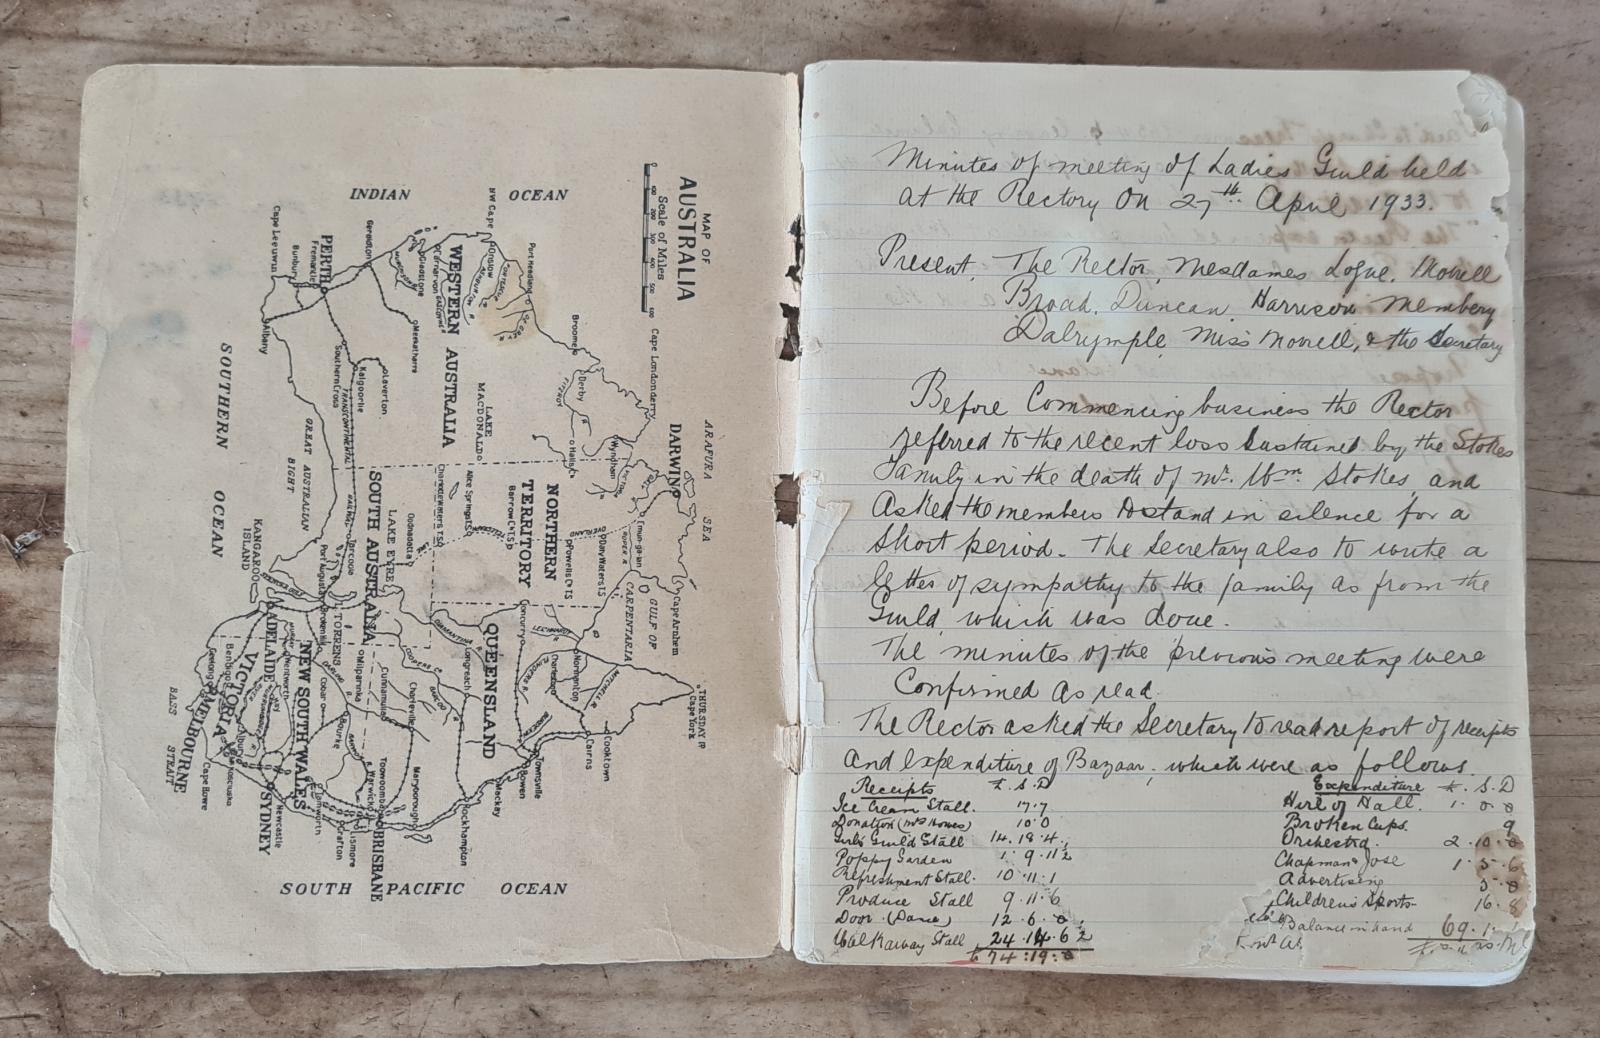 MAP OF
AUSTRALIA
Scale of Miles
0 100 200 300 400 500 600
INDIAN OCEAN
ARAFURA SEA
SOUTHERN OCEAN
SOUTH PACIFIC OCEAN
GREAT AUSTRALIAN BIGHT
GULF OF CARPENTARIA
BASS STRAIT
KANGAROO ISLAND
WESTERN AUSTRALIA
NORTHERN TERRITORY
SOUTH AUSTRALIA
QUEENSLAND
NEW SOUTH WALES
VICTORIA
PERTH
DARWIN
ADELAIDE
MELBOURNE
SYDNEY
BRISBANE
NW Cape
Cape Leeuwin
Bunbury
Fremantle
Geraldton
Albany
Onslow
Carnarvon
Port Hedland
Broome
Derby
FITZROY
Cape Londonderry
Wyndham
Meekatharra
Laverton
Kalgoorlie
Southern Cross
TRANSCONTINENTAL
LAKE MACDONALD
Alice Springs T.S
Charlotte Waters T.S
Barrow Ck T.S
Powells Ck T.S
Daly Waters T.S
ROPER R
Oodnadatta
LAKE EYRE
Tarcoola
Port Augusta
TORRENS
Cape Arnhem
THURSDAY IS
Cape York
MITCHELL R
Normanton
LEICHHARDT
Cloncurry
DIAMANTINA
COOPERS C
Longreach
Cooktown
Cairns
Townsville
Bowen
Mackay
Rockhampton
Maryborough
Toowoomba
Warwick
Charleville
Cunnamulla
Milparinka
Bourke
Cobar
Wentworth
Lismore
Grafton
Tamworth
Newcastle
Bendigo
Geelong
Albury
Cape Howe
Minutes of meeting of Ladies Guild held
at the Rectory on 27th April 1933.
Present, The Rector, Mesdames Logue, Morell
Broad, Duncan, Harrison, Membery
Dalrymple, Miss Morell, & the Secretary
Before Commencing business the Rector
referred to the recent loss sustained by the Stokes
Family in the death of Mr. Wm. Stokes, and
asked the members to stand in silence for a
short period. The Secretary also to write a
letter of sympathy to the family as from the
Guild, which was done.
The minutes of the previous meeting were
Confirmed as read.
The Rector asked the Secretary to read report of receipts
and Expenditure of Bazaar, which were as follows.
Receipts £. S. D
Ice Cream Stall. 17.7
Donation (Mrs Howes) 10.0
Girls Guild Stall 14.18.4
Poppy Garden 1.9.11½
Refreshment Stall. 10.11.1
Produce Stall 9.11.6
Door (Dance) 12.6.0
Walkaway Stall 24.14.6½
£74:19:0
Expenditure £. S. D
Hire of Hall. 1.0.0
Broken Cups. 9
Orchestra. 2.10.0
Chapman & Jose 1.5.6
Advertising 5.0
Children's Sports 16.8
Balance in hand 69.1